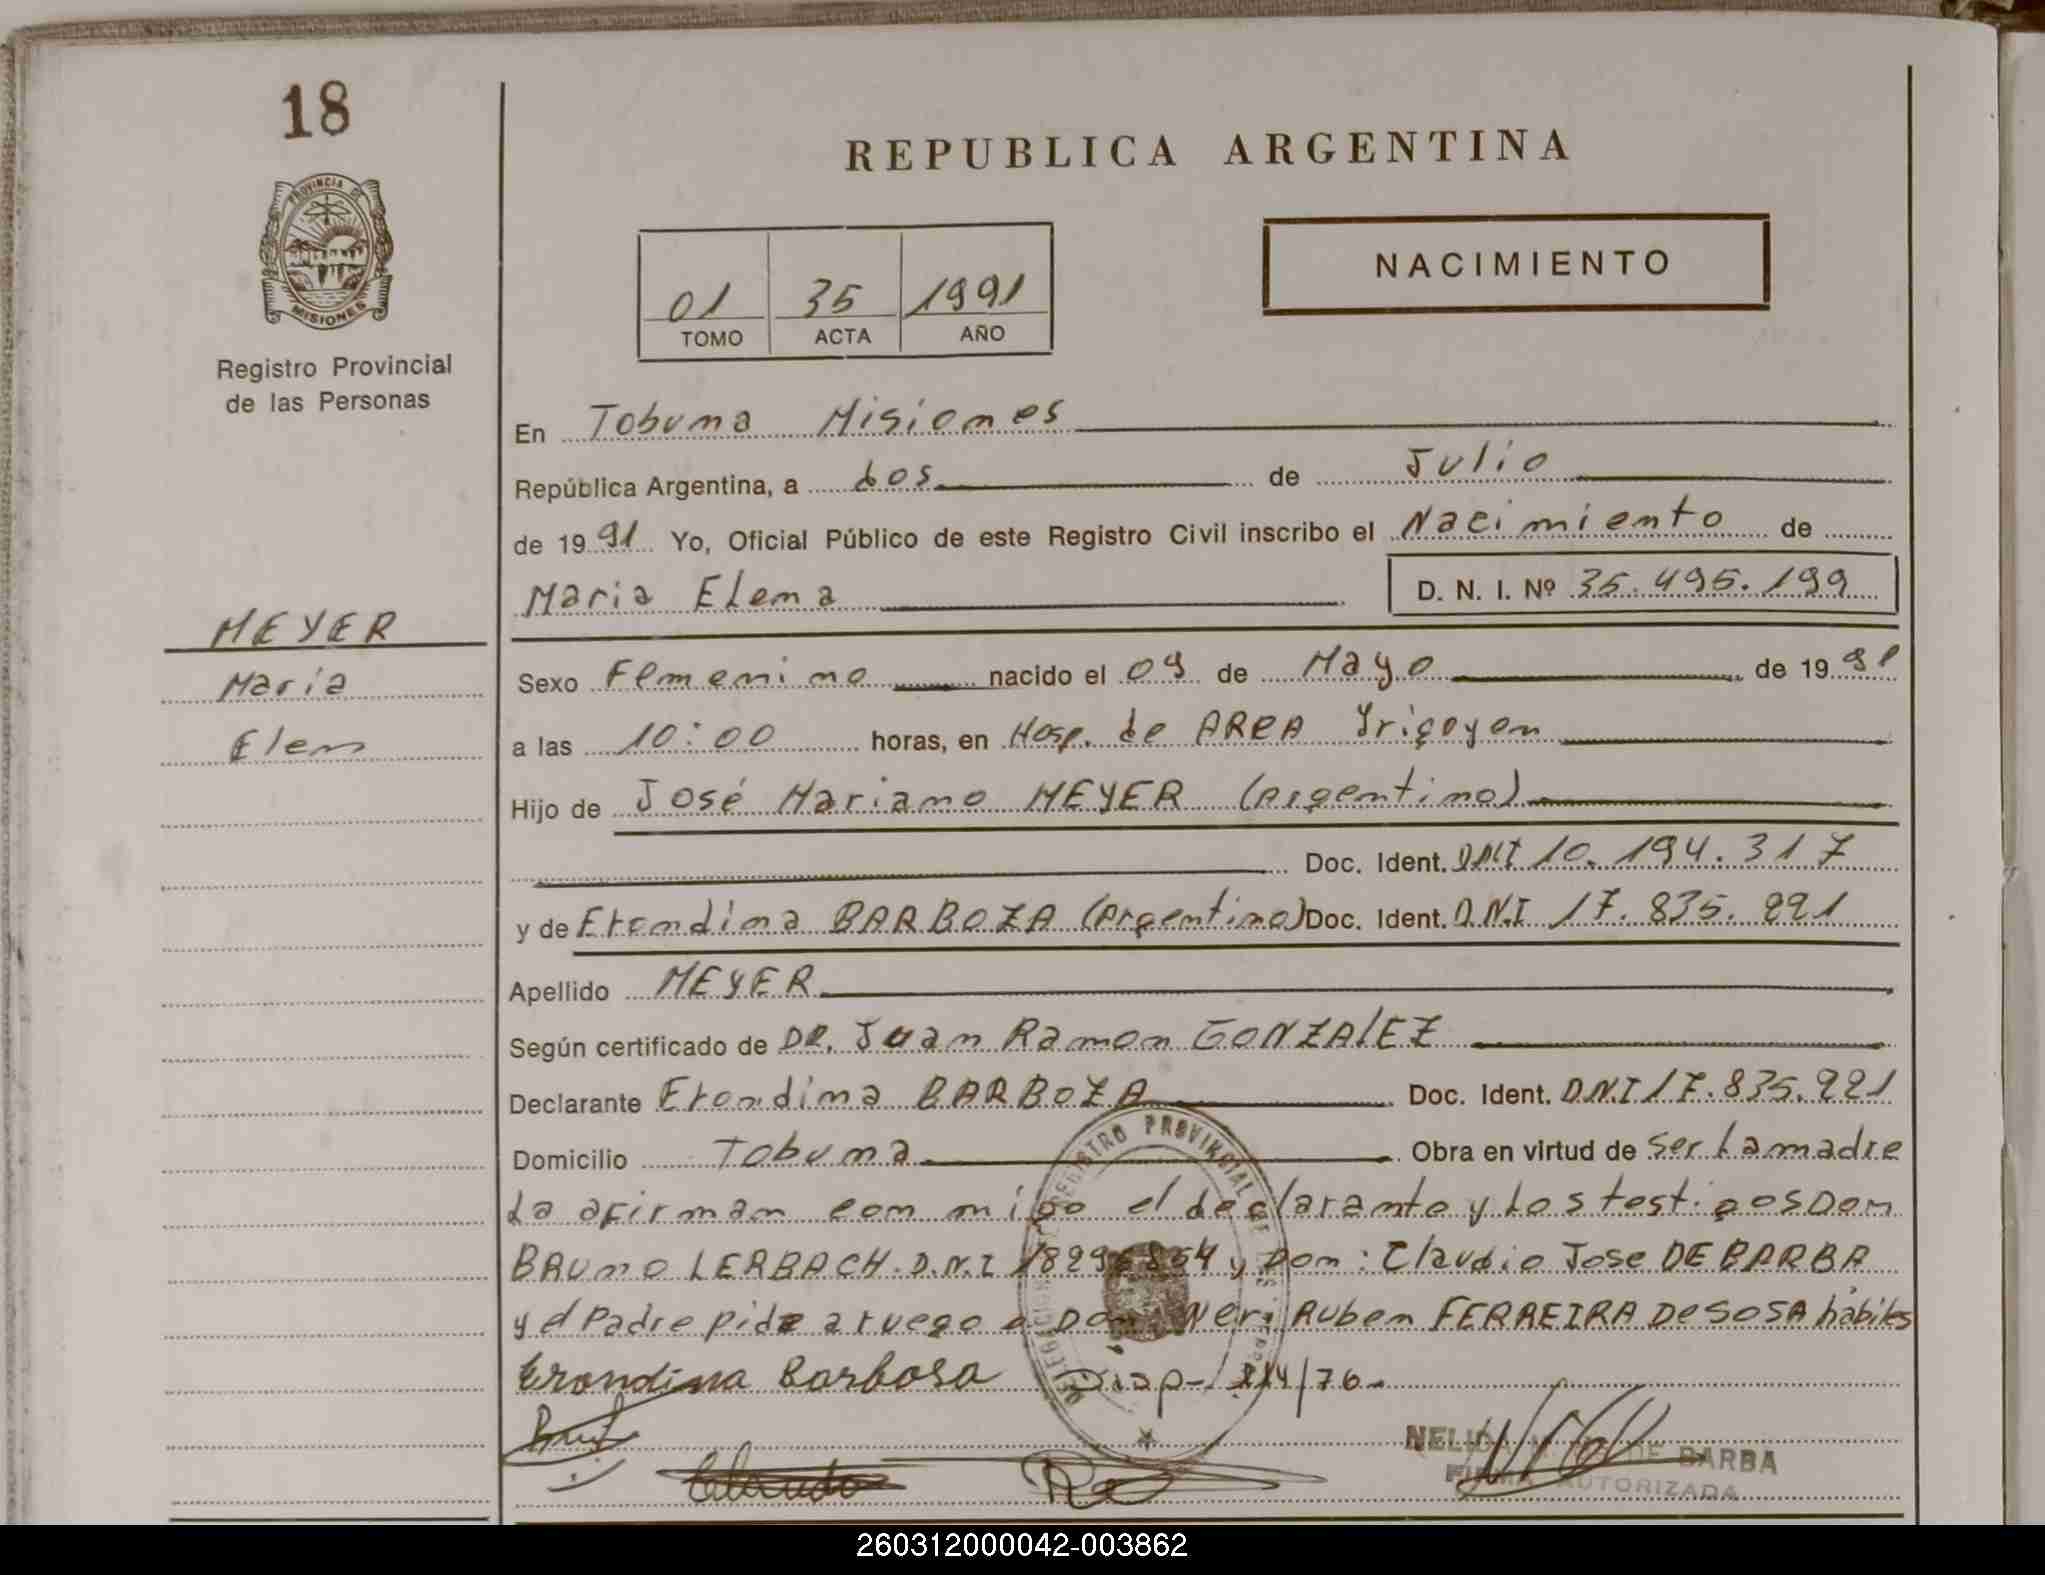 18
REPUBLICA ARGENTINA
PROVINCIA DE
MISIONES
Registro Provincial
de las Personas
01 35 1991
TOMO ACTA AÑO
NACIMIENTO
En Tobuna Misiones
República Argentina, a dos de Julio
de 1991 Yo, Oficial Público de este Registro Civil inscribo el Nacimiento de
Maria Elena D. N. I. Nº 35.495.199
MEYER
Maria
Elen
Sexo Femenino nacido el 09 de Mayo de 1991
a las 10:00 horas, en Hosp. de AREA Yrigoyen
Hijo de José Mariano MEYER (Argentino)
Doc. Ident. DNI 10.194.317
y de Erondina BARBOZA (Argentina) Doc. Ident. D.N.I 17.835.221
Apellido MEYER
Según certificado de DR. Juan Ramon GONZALEZ
Declarante Erondina BARBOZA Doc. Ident. D.N.I 17.835.221
Domicilio Tobuna Obra en virtud de ser La madre
La afirman con migo el declarante y Los testigos Don
BRUNO LERBACH. D.N.I 18296854 y Don: Claudio Jose DE BARBA
y el Padre pide a ruego a Don Neri Ruben FERREIRA De SOSA hábiles
Erondina Barbosa Disp- 214/76-
NELI DE BARBA
FIRMA AUTORIZADA
REGISTRO PROVINCIAL DE LAS
260312000042-003862